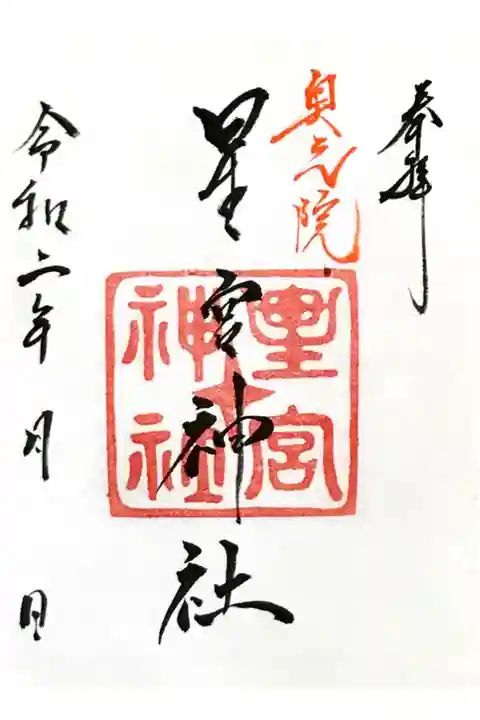 奉拝
奥之院
星宮神社
星宮
神社
令和二年 月 日